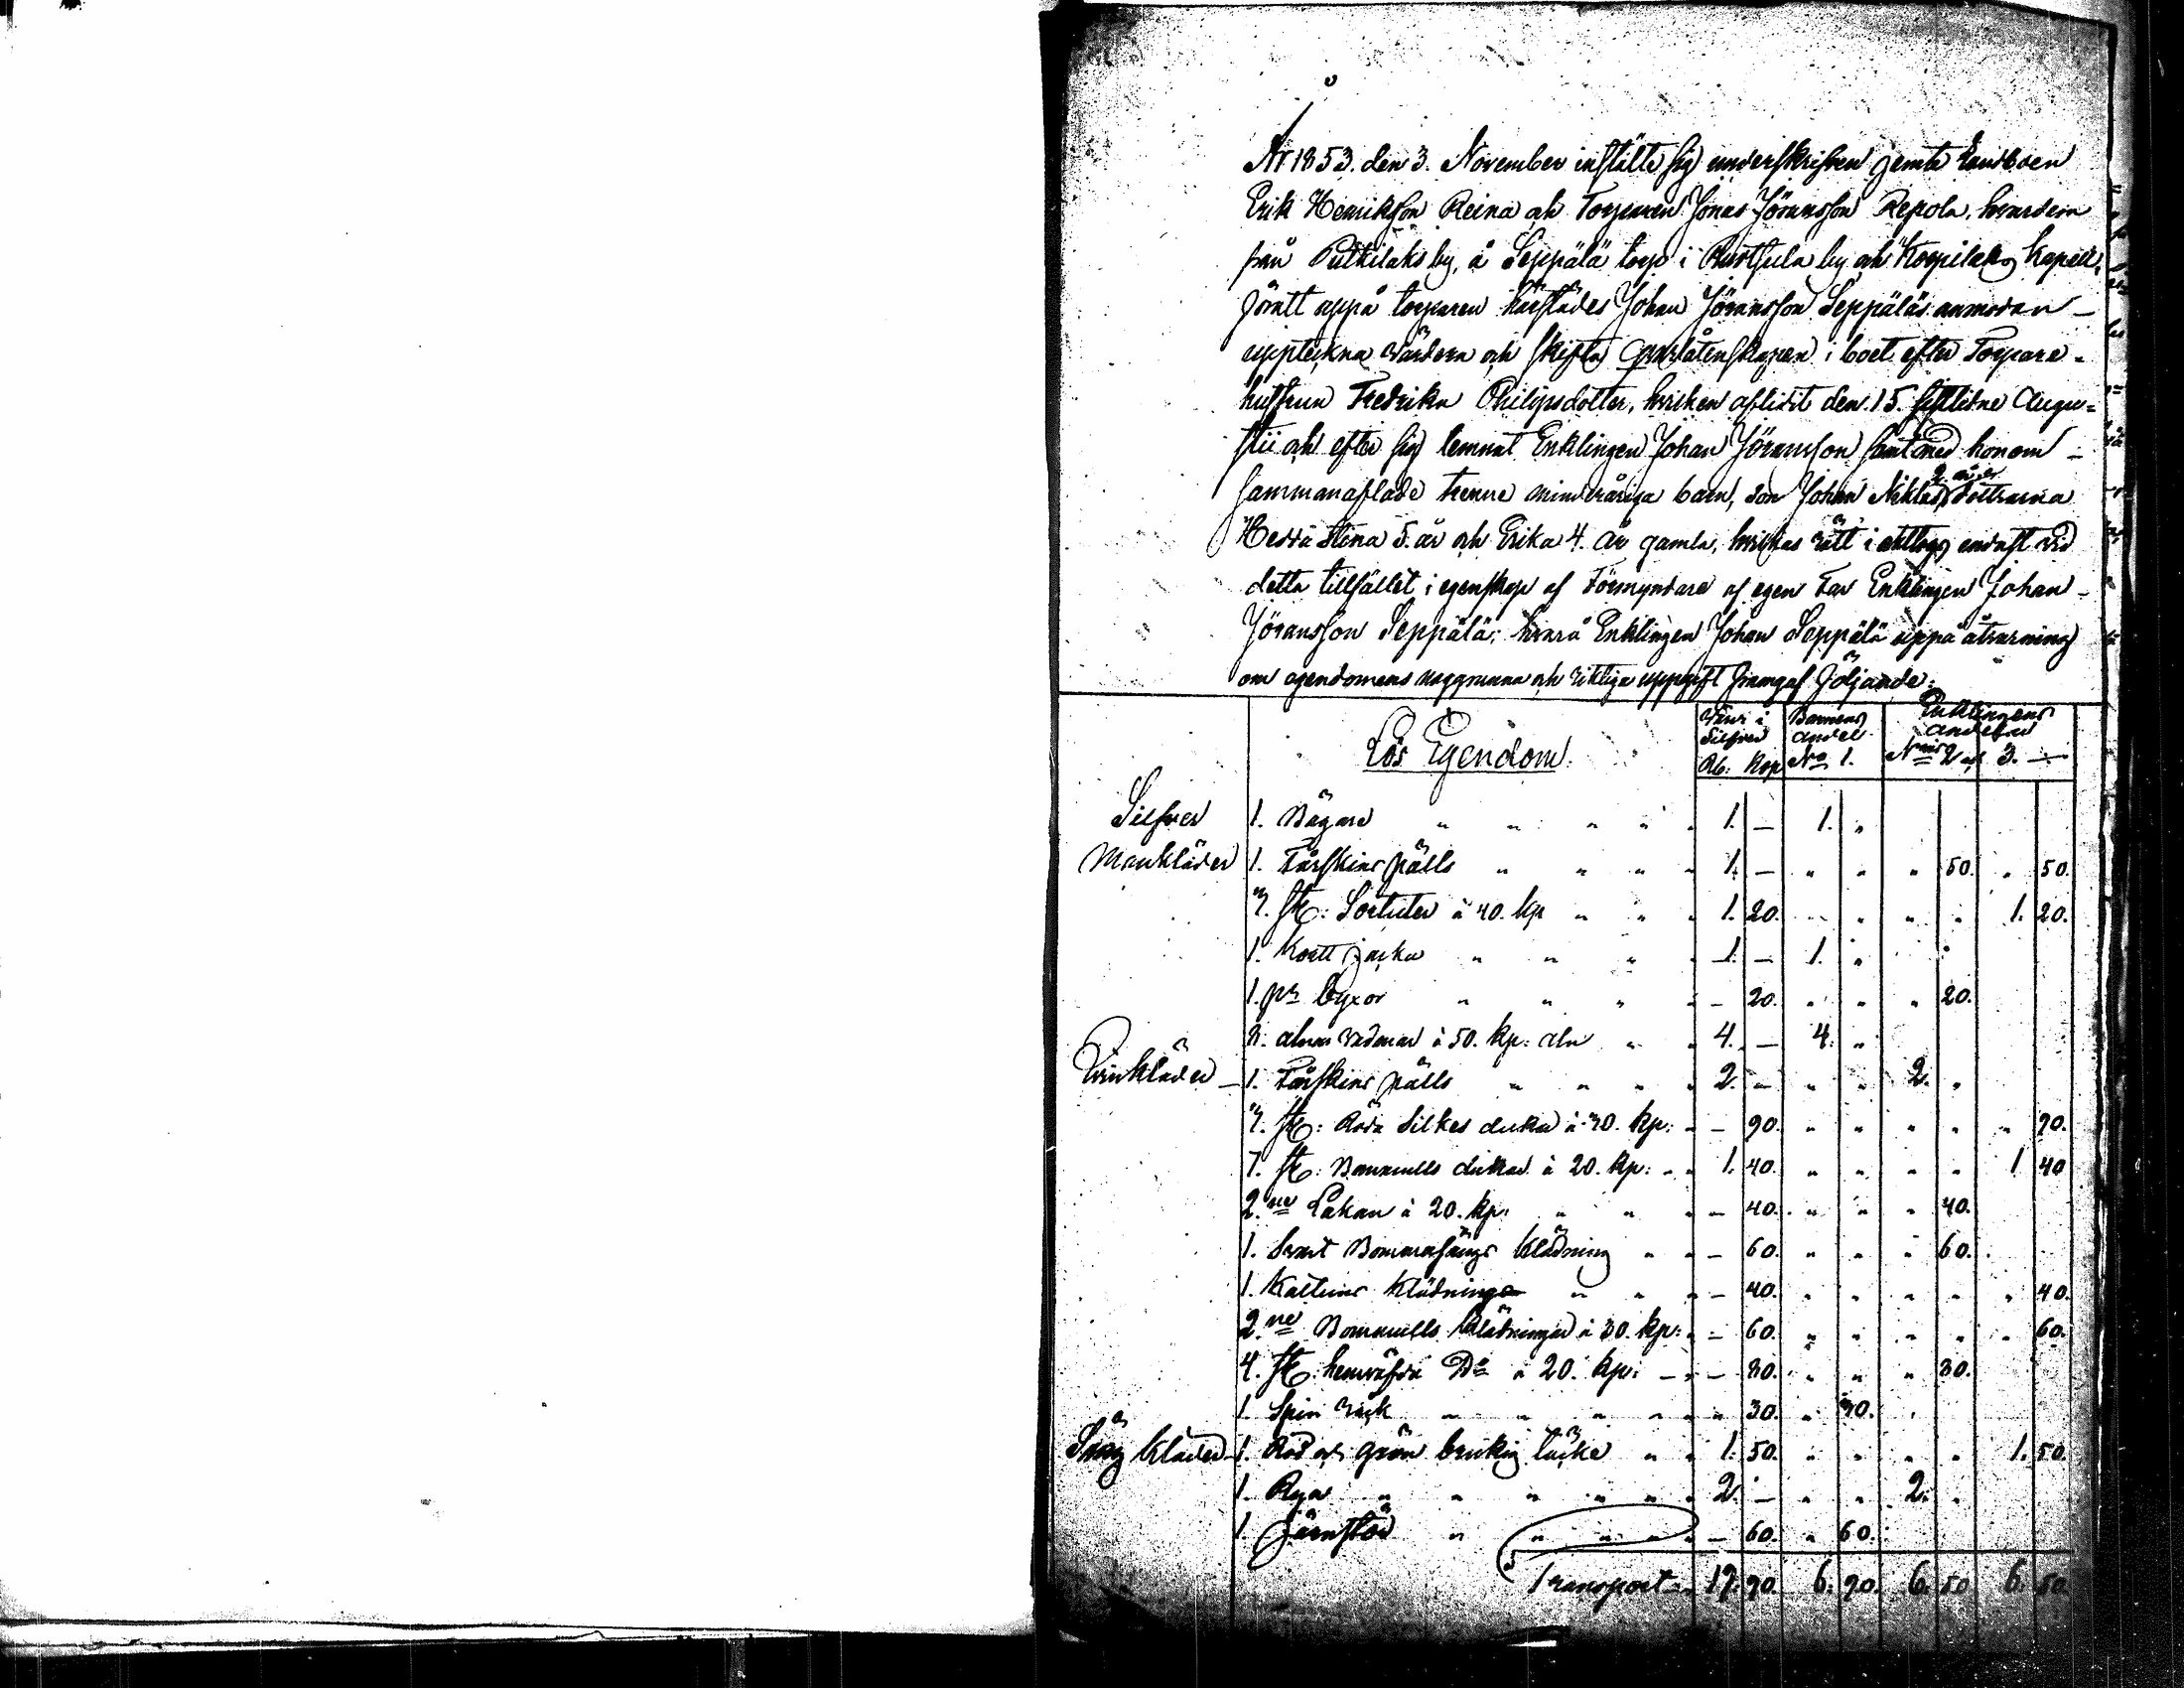 År 1853. den 3. November instälte sig underskrifven jemte Landboen
Erik Henriksson Reina och Torparen Jonas Jöransson Repola, hvardera
från Pulkilaks by, å Seppälä torp i by och Korpilaks Kapell,
för att uppå torparen härstädes Johan Jöransson Seppäläs anmodan
uppteckna värdera och skifta qvarlåtenskapen i boet efter Torpare-
hustrun Fredrika Philipsdotter, hvilken aflidit den 15. sistlidne Augu-
stii och efter sig lemnat Enklingen Johan Jöransson samt med honom
sammanaflade trenne minderåriga barn, son Johan Niklas 2 år, döttrarna
Hedda Stina 5. år och Erika 4. år gamla, hvilkas rätt i akttogs endast vid
detta tillfället i egenskap af Förmyndare af egen Far Enklingen Johan
Jöransson Seppälä; hvarå Enklingen Johan Seppälä uppå åtvarning
om egendomens noggranna och riktiga uppgift framgaf följande:
Lös Egendom. Värde i Silfver Rb: Kop Barnens andel No 1. Enklingens andelar N:ris 2 och 3.
Silfver 1. Bägare " " " " " 1. — 1. "
Mankläder 1. Fårskins pälls " " " " 1. — " " " 50. " 50.
3. st: Sortuter à 40. kp " " " 1. 20. " " " " 1. 20.
1. Kort jacka " " " " 1. — 1. "
1. pr byxor " " " " — 20. " " " 20.
8. alnar vadmar à 50. kp: aln " " 4. — 4. "
Qvinkläder — 1. Fårskins pälls " " " " 2. — " " 2. "
3. st: Röda Silkes dukar à 30. kp: " — 90. " " " " " 90.
7. st: Bomulls dukar à 20. kp: " " 1. 40. " " " " 1 40
2.ne Lakan à 20. kp: " " " — 40. " " " 40.
1. Svart klädning " " — 60. " " " 60.
1. Kattuns Klädning " " " — 40. " " " " " 40.
2.ne Bomulls klädningar à 30. kp: " — 60. " " " " " 60.
4. st: hemväfda D:o à 20. kp: — " — 80. " " " 80.
1. Spin råck " " " " " " 30. " 30.
Säng kläder — 1. Röd och grön brukig täcke " " 1. 50. " " " " 1. 50.
1. Rya " " " " " " 2. — " " 2. "
1. Järnstör " " " " " — 60. " 60.
Transport " 19. 90. 6. 90. 6. 50 6. 50